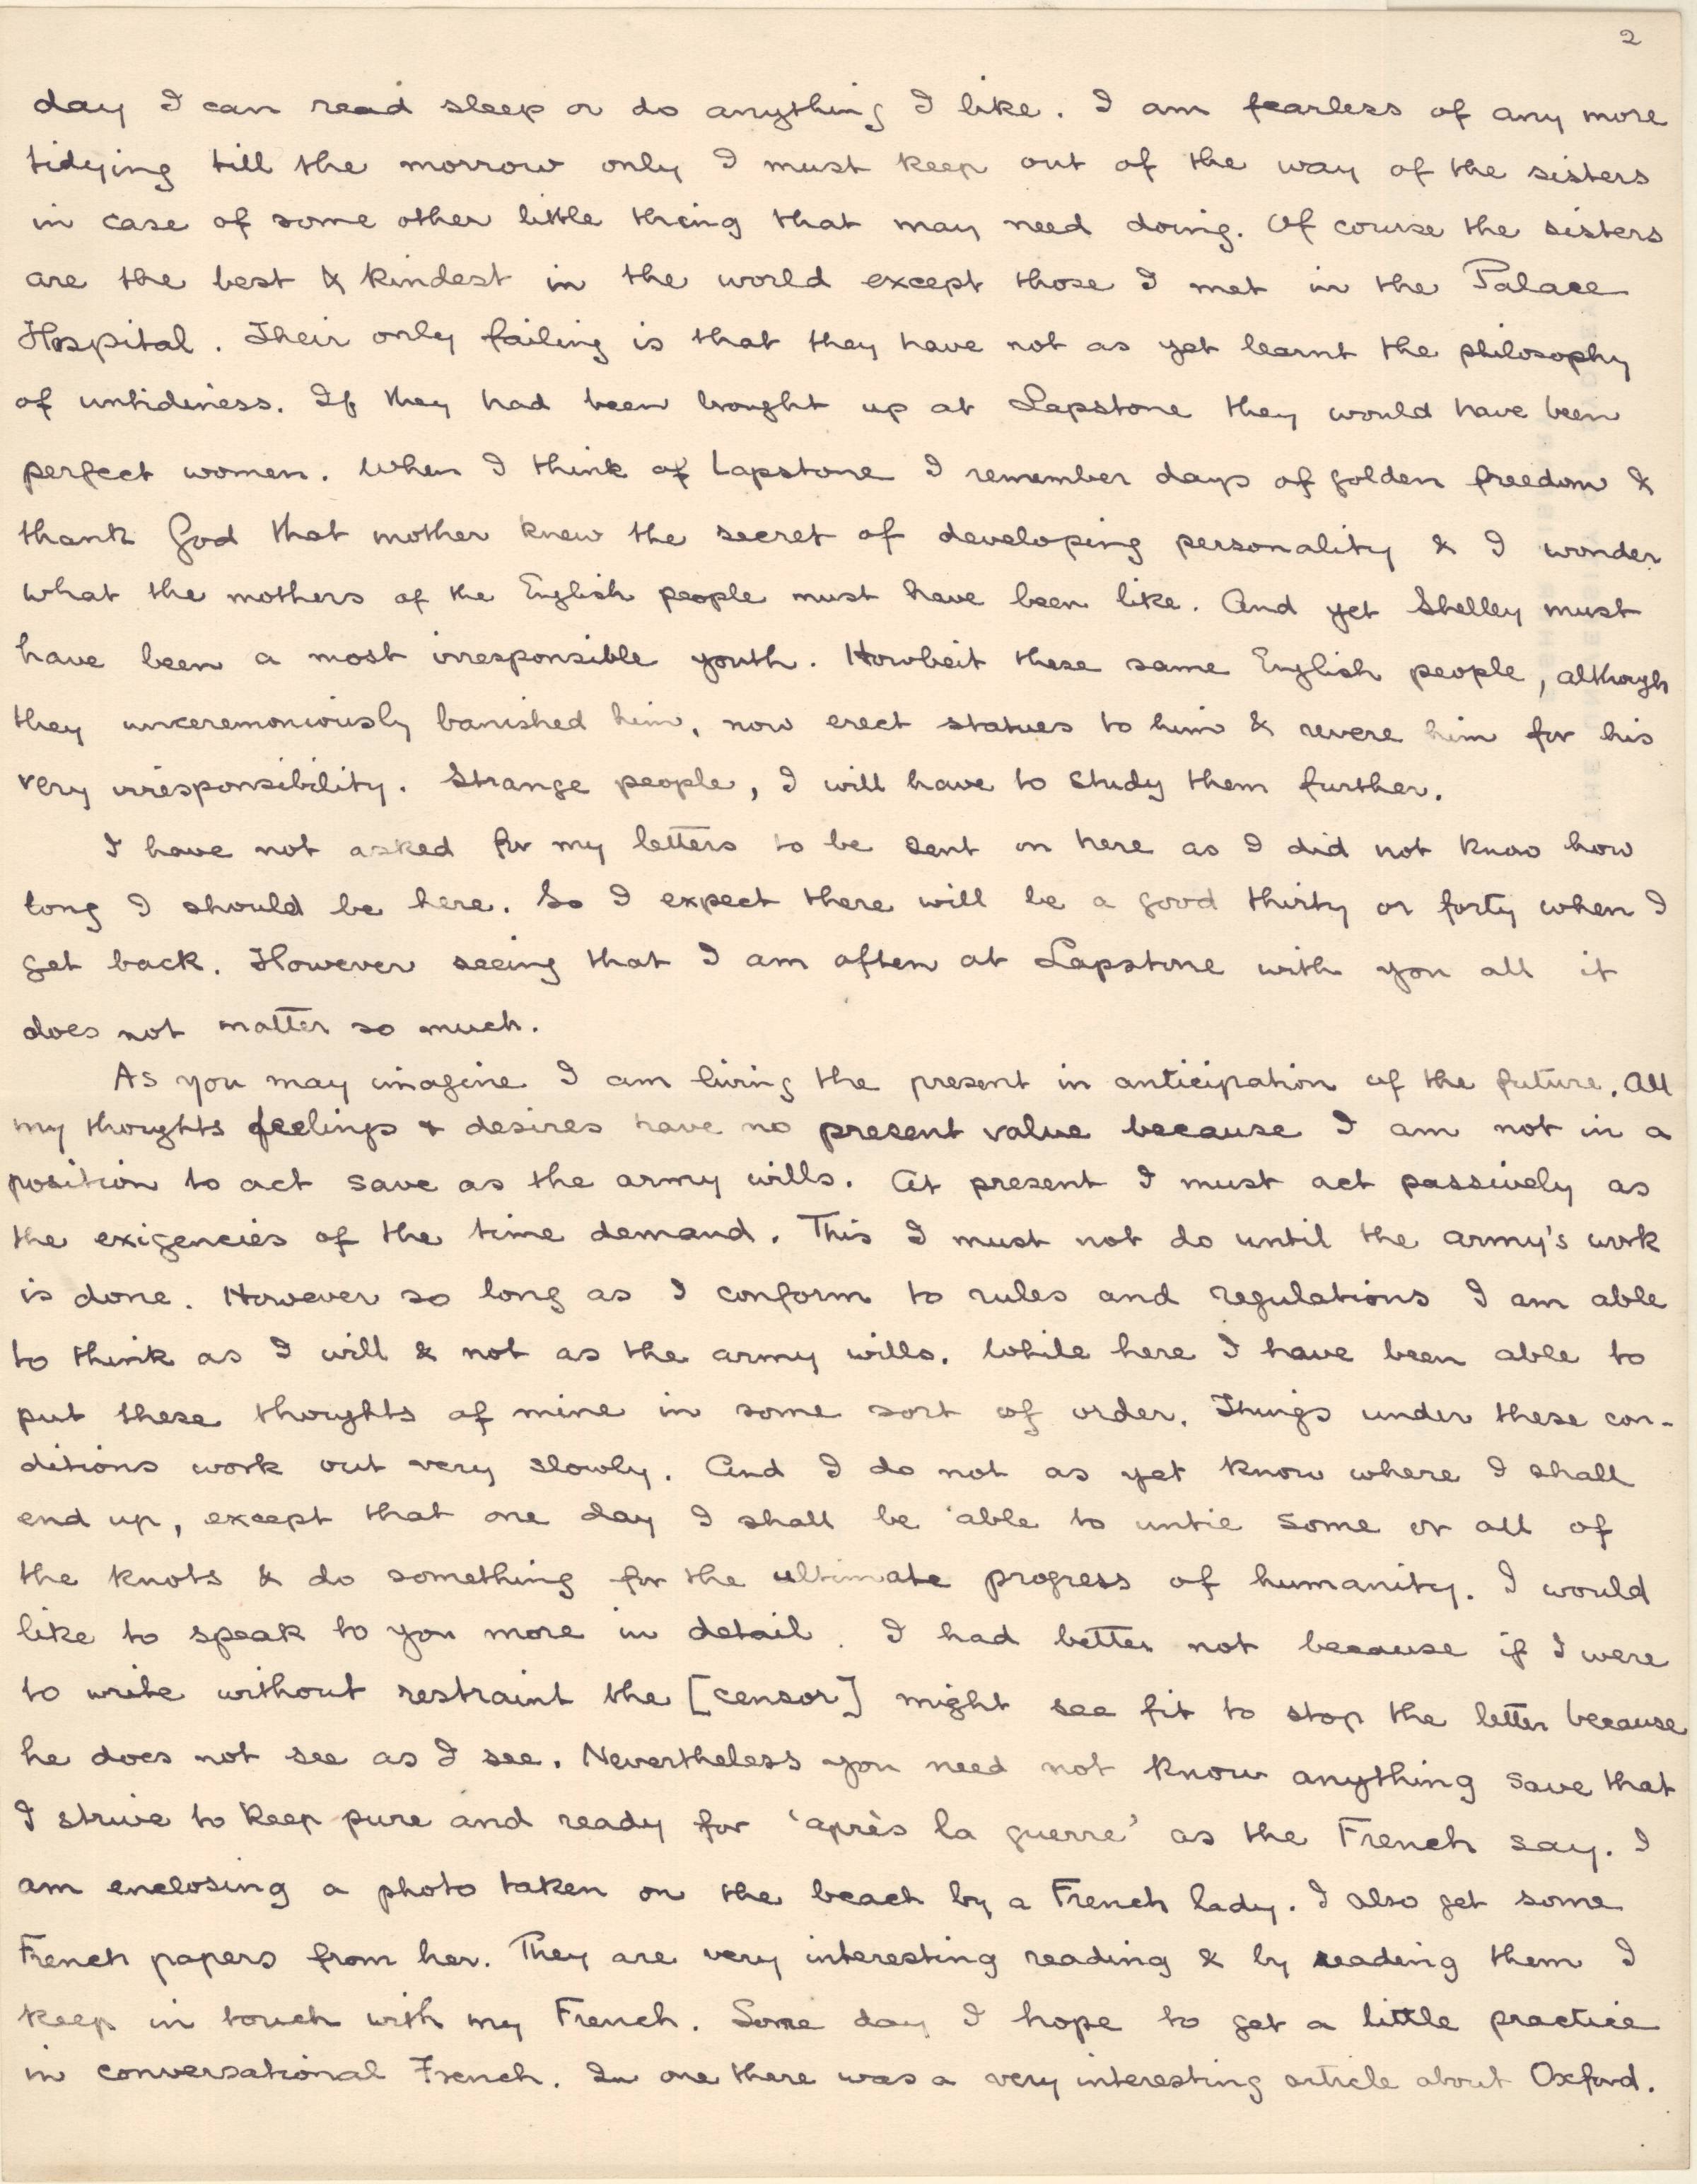 2
day I can read sleep or do anything I like. I am fearless of any more
tidying till the morrow only I must keep out of the way of the sisters
in case of some other little thing that may need doing. Of course the sisters
are the best & kindest in the world except those I met in the Palace
Hospital. Their only failing is that they have not as yet learnt the philosophy
of untidiness. If they had been brought up at Lapstone they would have been
perfect women. When I think of Lapstone I remember days of golden freedom &
thank God that mother knew the secret of developing personality & I wonder
what the mothers of the English people must have been like. And yet Shelley must
have been a most irresponsible youth. Howbeit these same English people, although
they unceremoniously banished him, now erect statues to him & revere him for his
very irresponsibility. Strange people, I will have to study them further.
I have not asked for my letters to be sent on here as I did not know how
long I should be here. So I expect there will be a good thirty or forty when I
get back. However seeing that I am often at Lapstone with you all it
does not matter so much.
As you may imagine I am living the present in anticipation of the future. All
my thoughts feelings & desires have no present value because I am not in a
position to act save as the army wills. At present I must act passively as
the exigencies of the time demand. This I must not do until the army's work
is done. However so long as I conform to rules and regulations I am able
to think as I will & not as the army wills. While here I have been able to
put these thoughts of mine in some sort of order. Things under these con-
ditions work out very slowly. And I do not as yet know where I shall
end up, except that one day I shall be able to untie some or all of
the knots & do something for the ultimate progress of humanity. I would
like to speak to you more in detail. I had better not because if I were
to write without restraint the [censor] might see fit to stop the letter because
he does not see as I see. Nevertheless you need not know anything save that
I strive to keep pure and ready for 'après la guerre' as the French say. I
am enclosing a photo taken on the beach by a French lady. I also get some
French papers from her. They are very interesting reading & by reading them I
keep in touch with my French. Some day I hope to get a little practice
in conversational French. In one there was a very interesting article about Oxford.